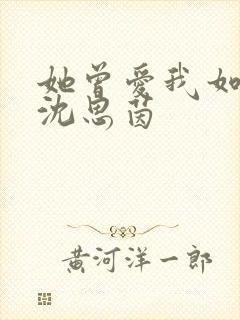 她曾愛我如
沈思茵
黄河洋一郎